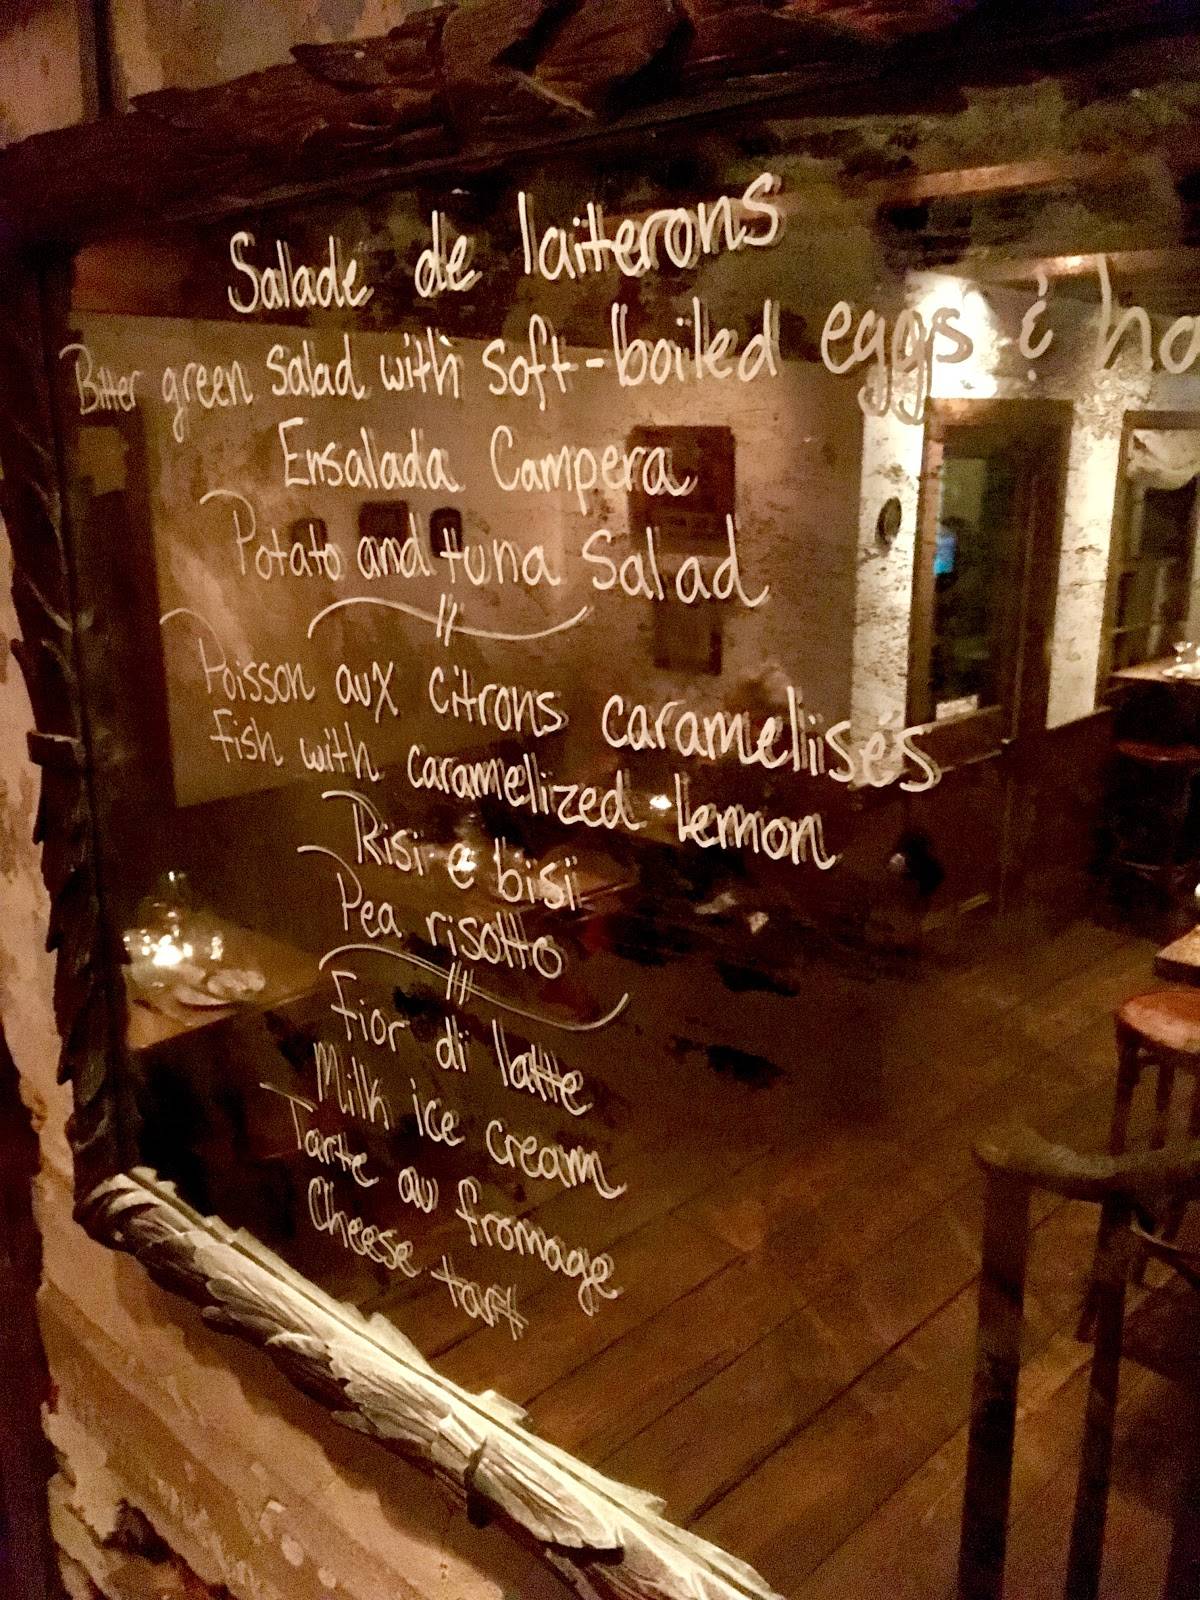 Salade de laiterons
Bitter green salad with soft-boiled eggs &
Ensalada Campera
Potato and tuna Salad
Poisson aux citrons carameliisés
fish with caramelized lemon
Risi e bisi
Pea risotto
Fior di latte
Milk ice cream
Tarte au fromage
Cheese tart